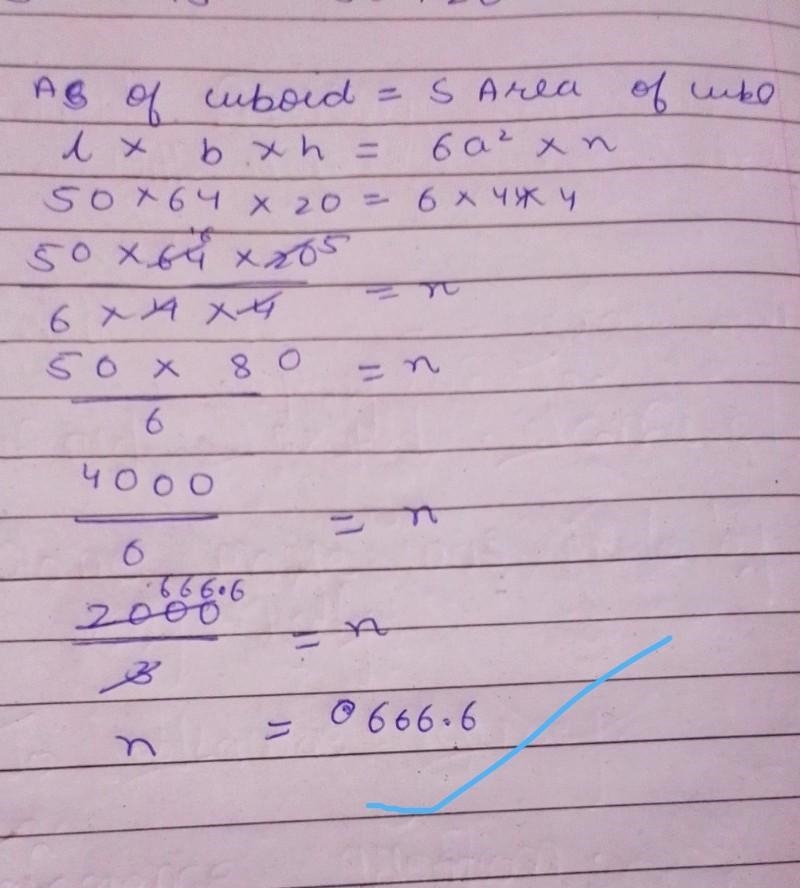 AS of cuboid = S Area of cubo
l × b × h = 6a² × n
50 × 64 × 20 = 6 × 4 × 4
50 × 64 16 × 20 5
6 × 4 × 4 = n
50 × 80 = n
6
4000
6 = n
666.6
2000 = n
3
n = 0666.6